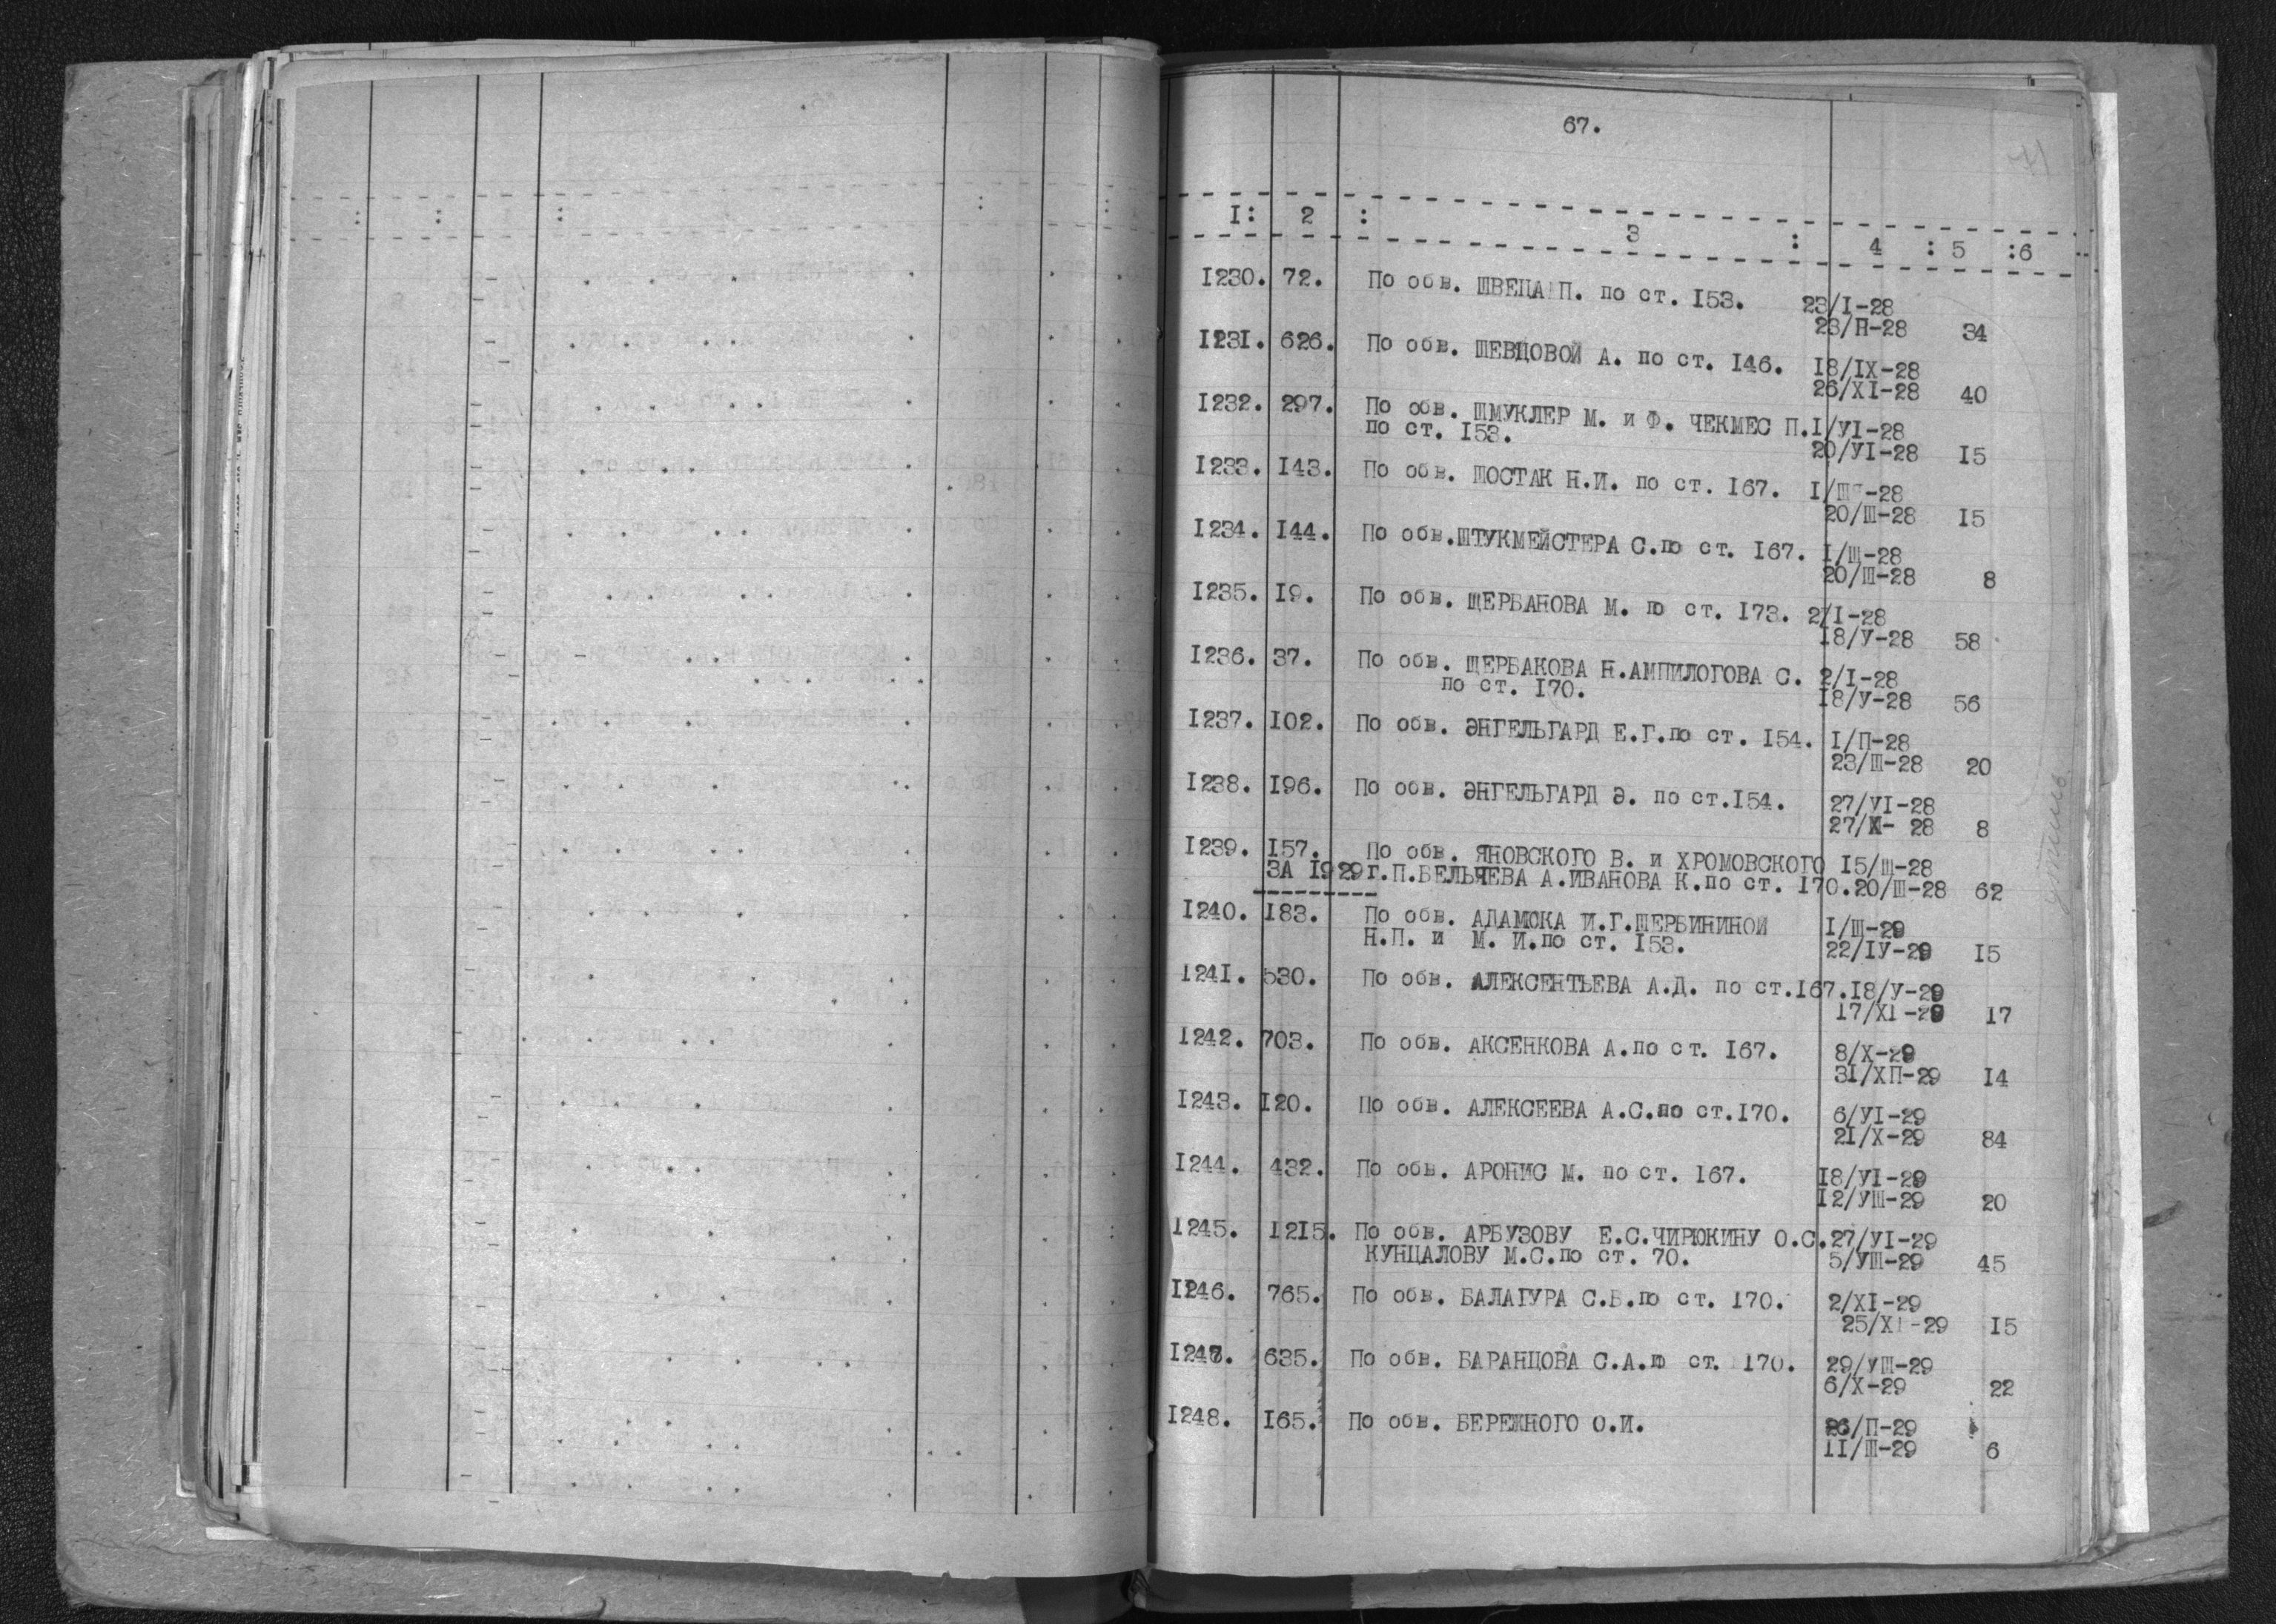 67.
I: 2 : 3 : 4 : 5 :6
I230. 72. По обв. ШВЕЦА П. по ст. I53. 23/I-28
23/П-28 34
I231. 626. По обв. ШЕВЦОВОЙ А. по ст. I46. I8/IX-28
26/XI-28 40
I232. 297. По обв. ШМУКЛЕР М. и Ф. ЧЕКМЕС П.I/УI-28
по ст. I53.
20/УI-28 I5
I233. I43. По обв. ШОСТАК Н.И. по ст. I67. I/Ш-28
20/Ш-28 I5
I234. I44. По обв.ШТУКМЕЙСТЕРА С.по ст. I67. I/Ш-28
20/Ш-28 8
I235. I9. По обв. ЩЕРБАНОВА М. по ст. I73. 2/I-28
I8/У-28 58
I236. 37. По обв. ЩЕРБАКОВА Н.АМПИЛОГОВА С. 2/I-28
по ст. I70. I8/У-28 56
I237. I02. По обв. ЭНГЕЛЬГАРД Е.Г.по ст. I54. I/П-28
23/Ш-28 20
I238. I96. По обв. ЭНГЕЛЬГАРД Э. по ст.I54. 27/УI-28
27/XI- 28 8
I239. I57. По обв. ЯНОВСКОГО В. и ХРОМОВСКОГО I5/Ш-28
ЗА I929г.П.БЕЛЬЧЕВА А.ИВАНОВА К.по ст. I70.20/Ш-28 62
I240. I83. По обв. АДАМСКА И.Г.ЩЕРБИНИНОЙ I/Ш-29
Н.П. и М. И.по ст. I53. 22/IУ-29 I5
I241. 530. По обв. АЛЕКСЕНТЬЕВА А.Д. по ст.I67.I8/У-29
I7/XI-29 I7
I242. 703. По обв. АКСЕНКОВА А.по ст. I67. 8/X-29
3I/XП-29 I4
I243. I20. По обв. АЛЕКСЕЕВА А.С.по ст.I70. 6/УI-29
2I/X-29 84
I244. 432. По обв. АРОНИС М. по ст. I67. I8/УI-29
I2/УШ-29 20
I245. I2I5. По обв. АРБУЗОВУ Е.С.ЧИРЮКИНУ О.С.27/УI-29
КУНЦАЛОВУ М.С.по ст. 70. 5/УШ-29 45
I246. 765. По обв. БАЛАГУРА С.В.по ст. I70. 2/XI-29
25/XI-29 I5
I247. 635. По обв. БАРАНЦОВА С.А.по ст. I70. 29/УШ-29
6/X-29 22
I248. I65. По обв. БЕРЕЖНОГО О.И. 26/П-29
II/Ш-29 6